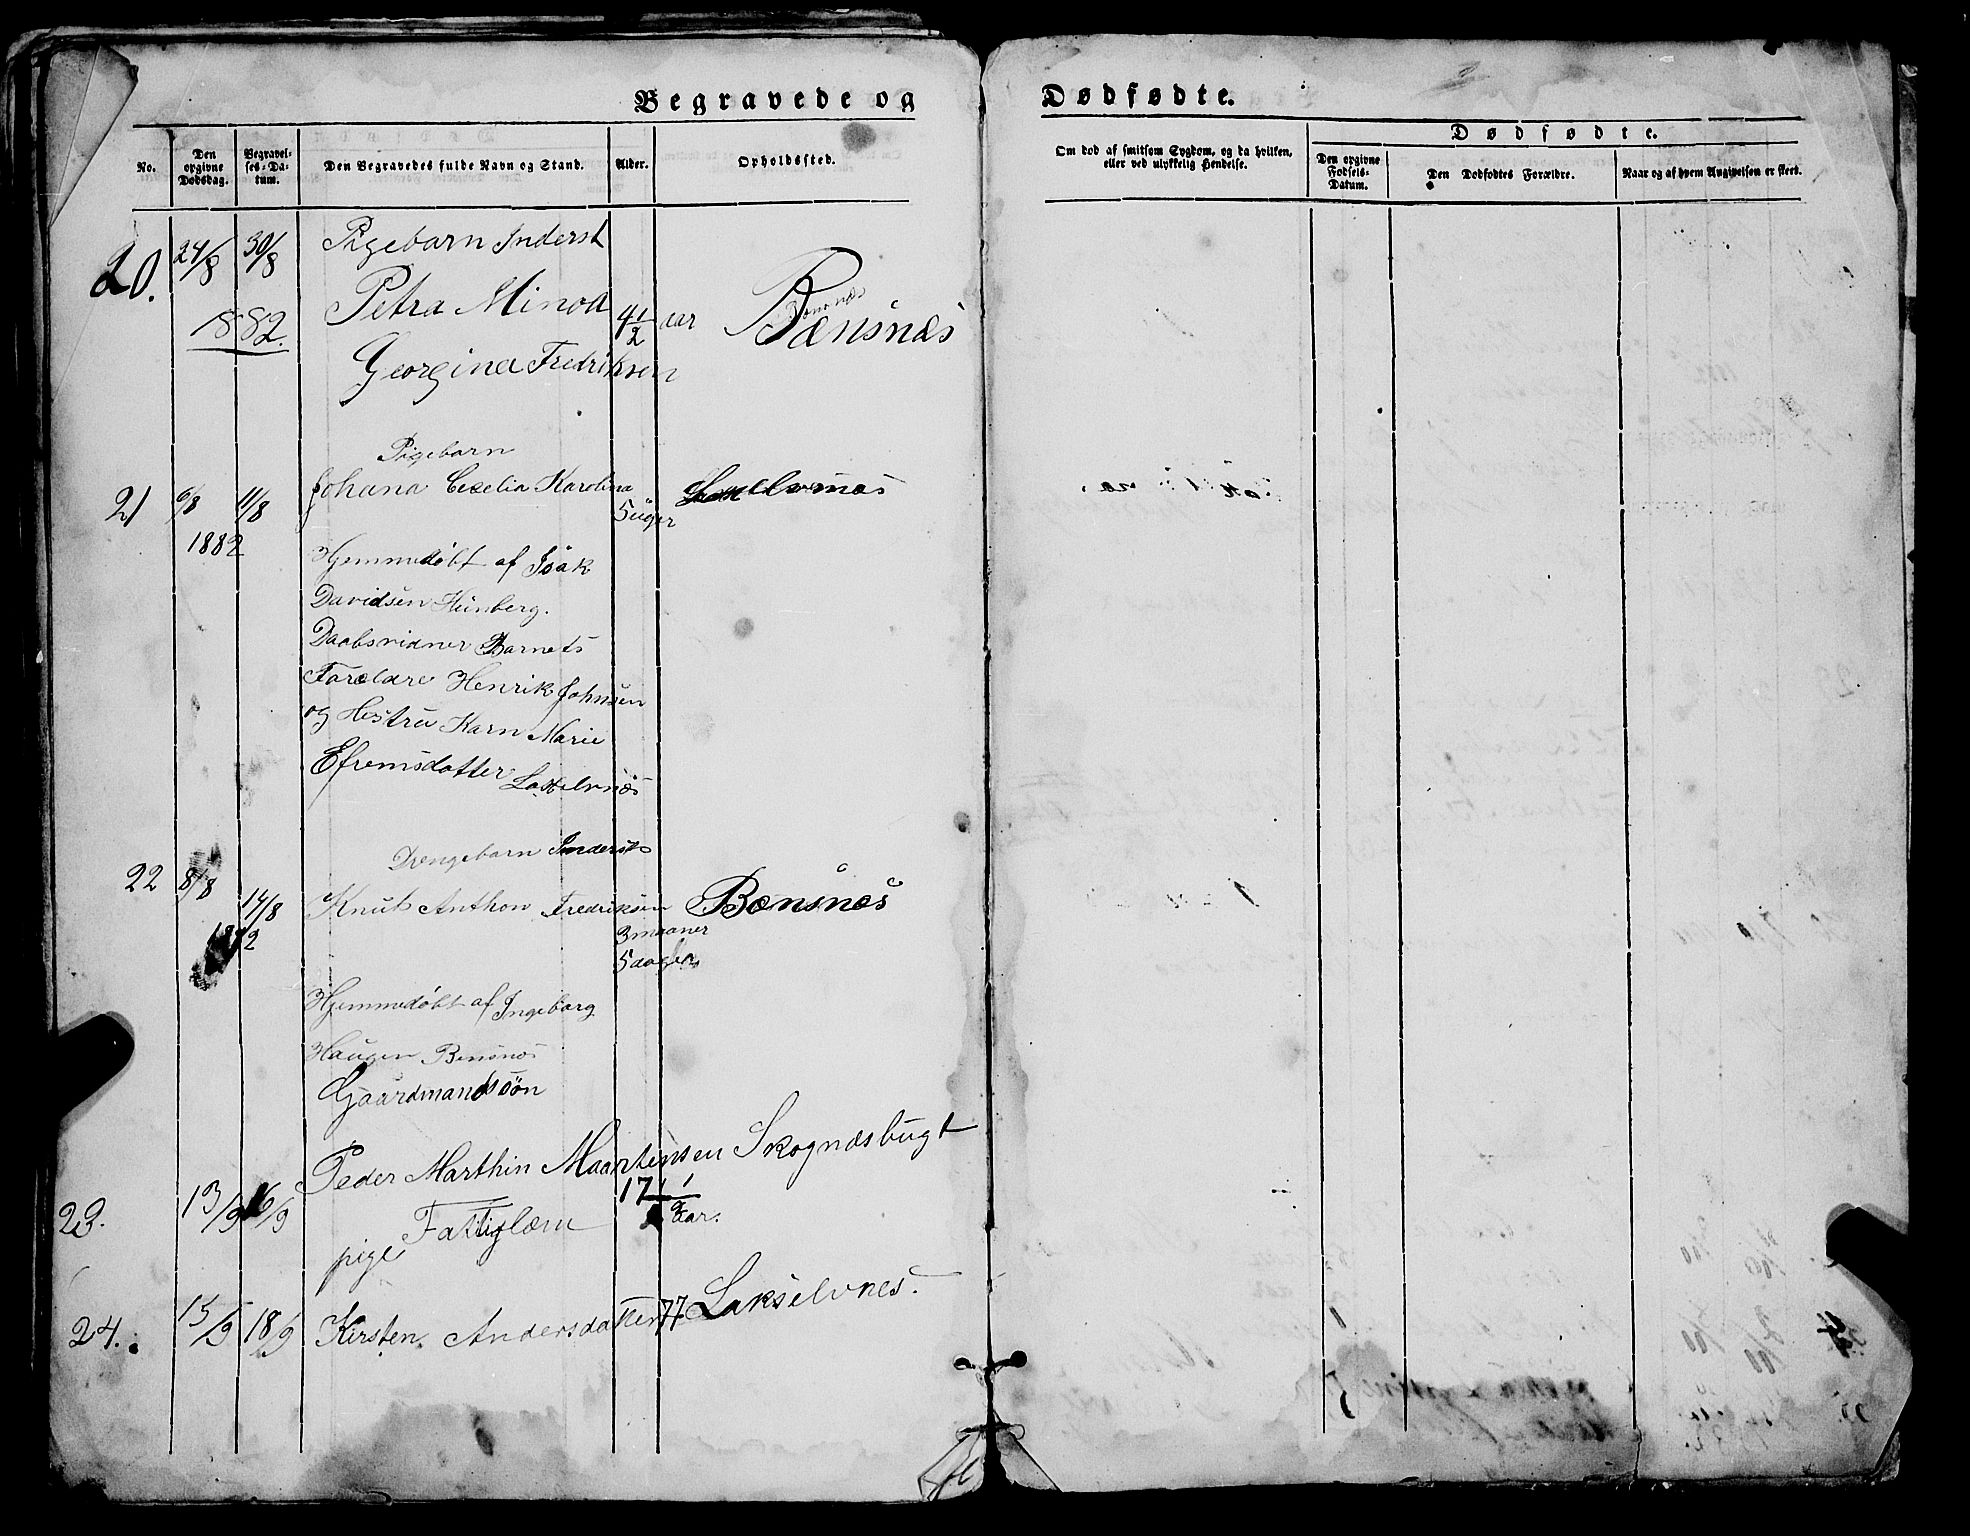 Begravede og
Dødfødte.
No.
Den opgivne Dødsdag.
Begravelses-Datum.
Den Begravedes fulde Navn og Stand.
Alder.
Opholdssted.
Om død af smitsom Sygdom, og da hvilken, eller ved ulykkelig Hendelse.
Dødfødte.
Den opgivne Fødsels-Datum.
Den Dødfødtes Forældre.
Naar og af hvem Angivelsen er skeet.
20. 24/8 30/8 Pigebarn Inderst
1882. Petra Minda 4 1/2 aar Bænsnæs
Georgine Fredriksen
Pigebarn
21 6/8 11/8 Johana Cecelia Karolina 5 uger
1882
Hjemmedøbt af Isak
Davidsen Hünberg.
Daabsvidner Barnets
Foreldre Henrik Johnsen
og Hustru Karn Marie
Efremsdatter Lakselvnes
Drengebarn Inderst
22 8/8 14/8 Knut Anthon Fredriksen Bænsnæs
1882 3 maaner
5 dage
Hjemmedøbt af Ingeborg
Haugen Bensnes
Gaardmandssøn
Peder Marthin Maartensen Skognæsbugt
23. 13/9 16/9 17 1/2 aar.
Fattiglem
pige
24. 15/9 18/9 Kirsten Andersdatter 77 Lakselvnes.